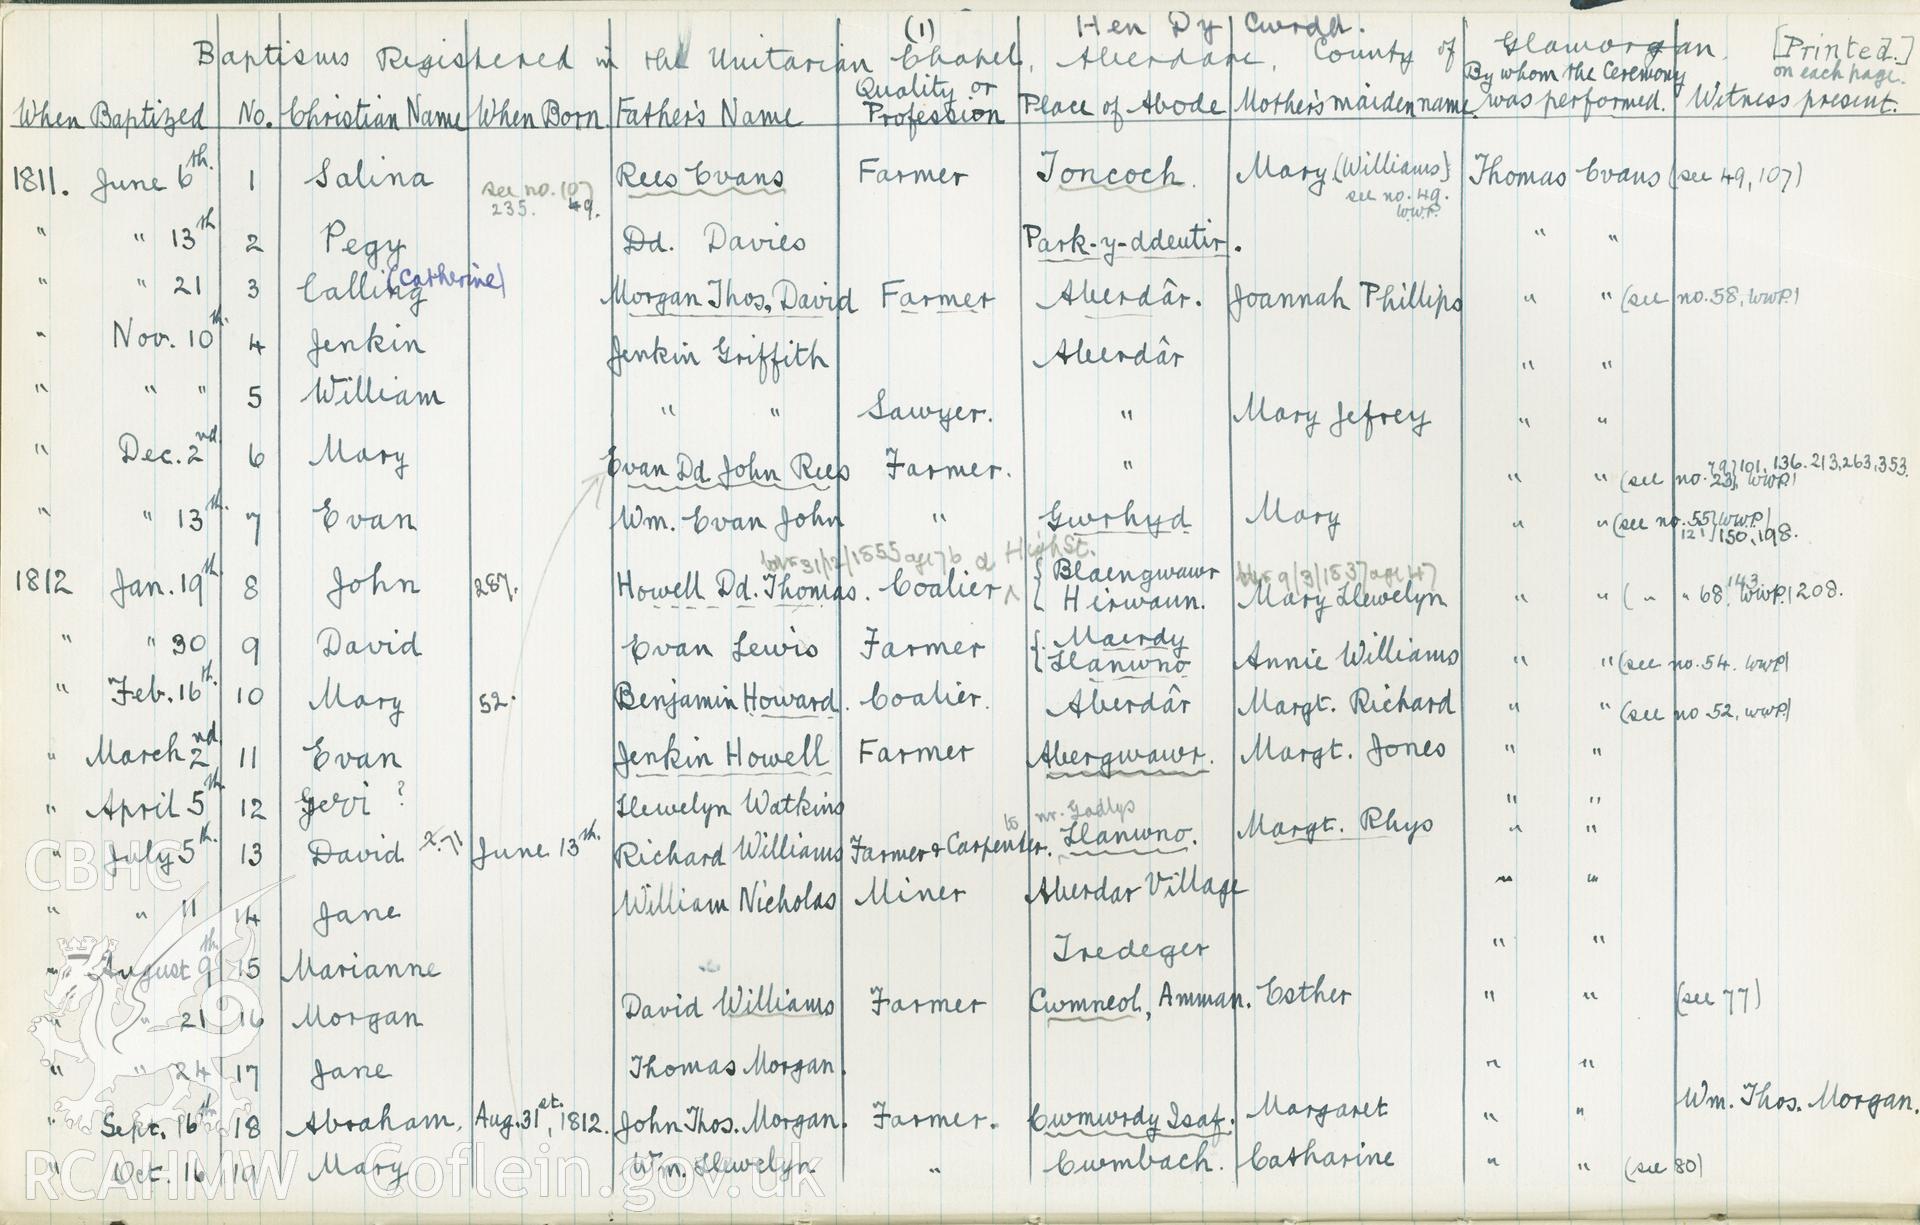 (1) Hen Dy Cwrdd.
Baptisms Registered in the Unitarian Chapel, Aberdare, County of Glamorgan. [Printed.] on each page.
When Baptized No. Christian Name When Born. Father's Name Quality or Profession Place of Abode Mother's maiden name By whom the Ceremony was performed. Witness present.
1811. June 6th. 1 Salina see no. 107 235. 49. Rees Evans Farmer Toncoch. Mary (Williams) see no. 49. W.W.P. Thomas Evans (see 49, 107)
" " 13th 2 Pegy Dd. Davies Park-y-ddeutir. " "
" " 21 3 Calling (Catherine) Morgan Thos. David Farmer Aberdâr. Joannah Phillips " " (see no. 58, WWP.)
" Nov. 10th. 4 Jenkin Jenkin Griffith Aberdâr " "
" " " 5 William " " Sawyer. " Mary Jefrey " "
" Dec. 2nd. 6 Mary Evan Dd. John Rees Farmer. " " " (see no. 79, 101, 136. 213, 263, 353. 23, WWP.)
" " 13th. 7 Evan Wm. Evan John " Gwrhyd Mary " " (see no. 55, WWP.) 121, 150, 198.
1812 Jan. 19th. 8 John 287. Howell Dd. Thomas. bur 31/12/1855 age 76 High St. Coalier { Blaengwawr Hirwaun. bur 9/3/1837 age 47 Mary Llewelyn " " ( " " 68, 143 WWP. 208.
" " 30 9 David Evan Lewis Farmer { Maerdy Llanwno Annie Williams " " (see no. 54. WWP)
" Feb. 16th. 10 Mary 52. Benjamin Howard. Coalier. Aberdâr Margt. Richard " " (see no 52, WWP)
" March 2nd. 11 Evan Jenkin Howell Farmer Abergwawr. Margt. Jones " "
" April 5th. 12 Gevi ? Llewelyn Watkins " "
" July 5th. 13 David 271 June 13th. Richard Williams Farmer & Carpenter. to nr. Gadlys Llanwno. Margt. Rhys " "
" " 11 14 Jane William Nicholas Miner Aberdar Village " "
" August 9th. 15 Marianne Tredeger " "
" " 21 16 Morgan David Williams Farmer Cwmneol, Amman. Esther " " (see 77)
" " 24 17 Jane Thomas Morgan. " "
" Sept. 16th 18 Abraham, Aug. 31st., 1812. John Thos. Morgan. Farmer. Cwmwrdy Isaf. Margaret " " Wm. Thos. Morgan.
" Oct. 16 19 Mary Wm. Llewelyn. " Cwmbach. Catharine " " (see 80)
CBHC
RCAHMW Coflein.gov.uk